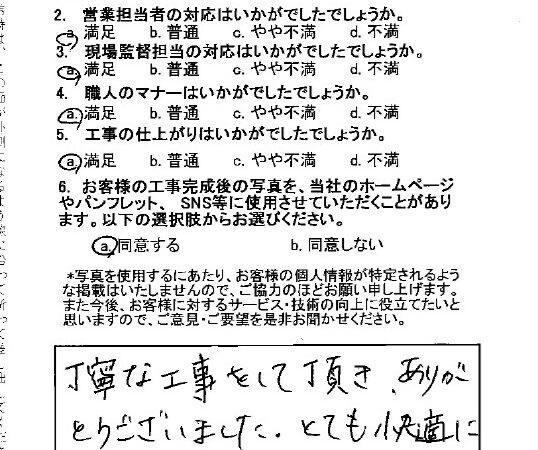 2. 営業担当者の対応はいかがでしたでしょうか。
a. 満足 b. 普通 c. やや不満 d. 不満
3. 現場監督担当の対応はいかがでしたでしょうか。
a. 満足 b. 普通 c. やや不満 d. 不満
4. 職人のマナーはいかがでしたでしょうか。
a. 満足 b. 普通 c. やや不満 d. 不満
5. 工事の仕上がりはいかがでしたでしょうか。
a. 満足 b. 普通 c. やや不満 d. 不満
6. お客様の工事完成後の写真を、当社のホームページ
やパンフレット、SNS等に使用させていただくことがあり
ます。以下の選択肢からお選びください。
a. 同意する b. 同意しない
*写真を使用するにあたり、お客様の個人情報が特定されるよう
な掲載はいたしませんので、ご協力のほどお願い申し上げます。
また今後、お客様に対するサービス・技術の向上に役立てたいと
思いますので、ご意見・ご要望を是非お聞かせください。
丁寧な工事をして頂き、ありが
とうございました。とても快適に